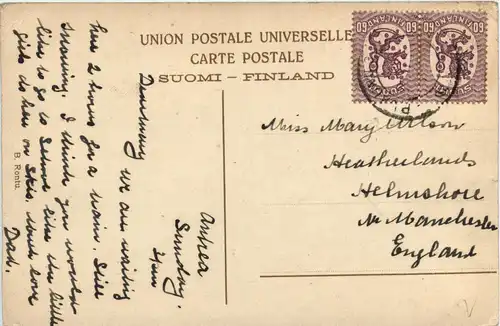 UNION POSTALE UNIVERSELLE
CARTE POSTALE
SUOMI – FINLAND
60 60
SUOMI FINLAND
SUOMI FINLAND
Miss Mary Wilson
Heatherlands
Helmshore
Nr Manchester
England
Antrea
Sunday.
Dear Mary we are waiting
here 2 hours for a train. Still
snowing. I think you would
like to go to School like the little
girls do here on Skis. Much love
Dad.
B. Rontu.